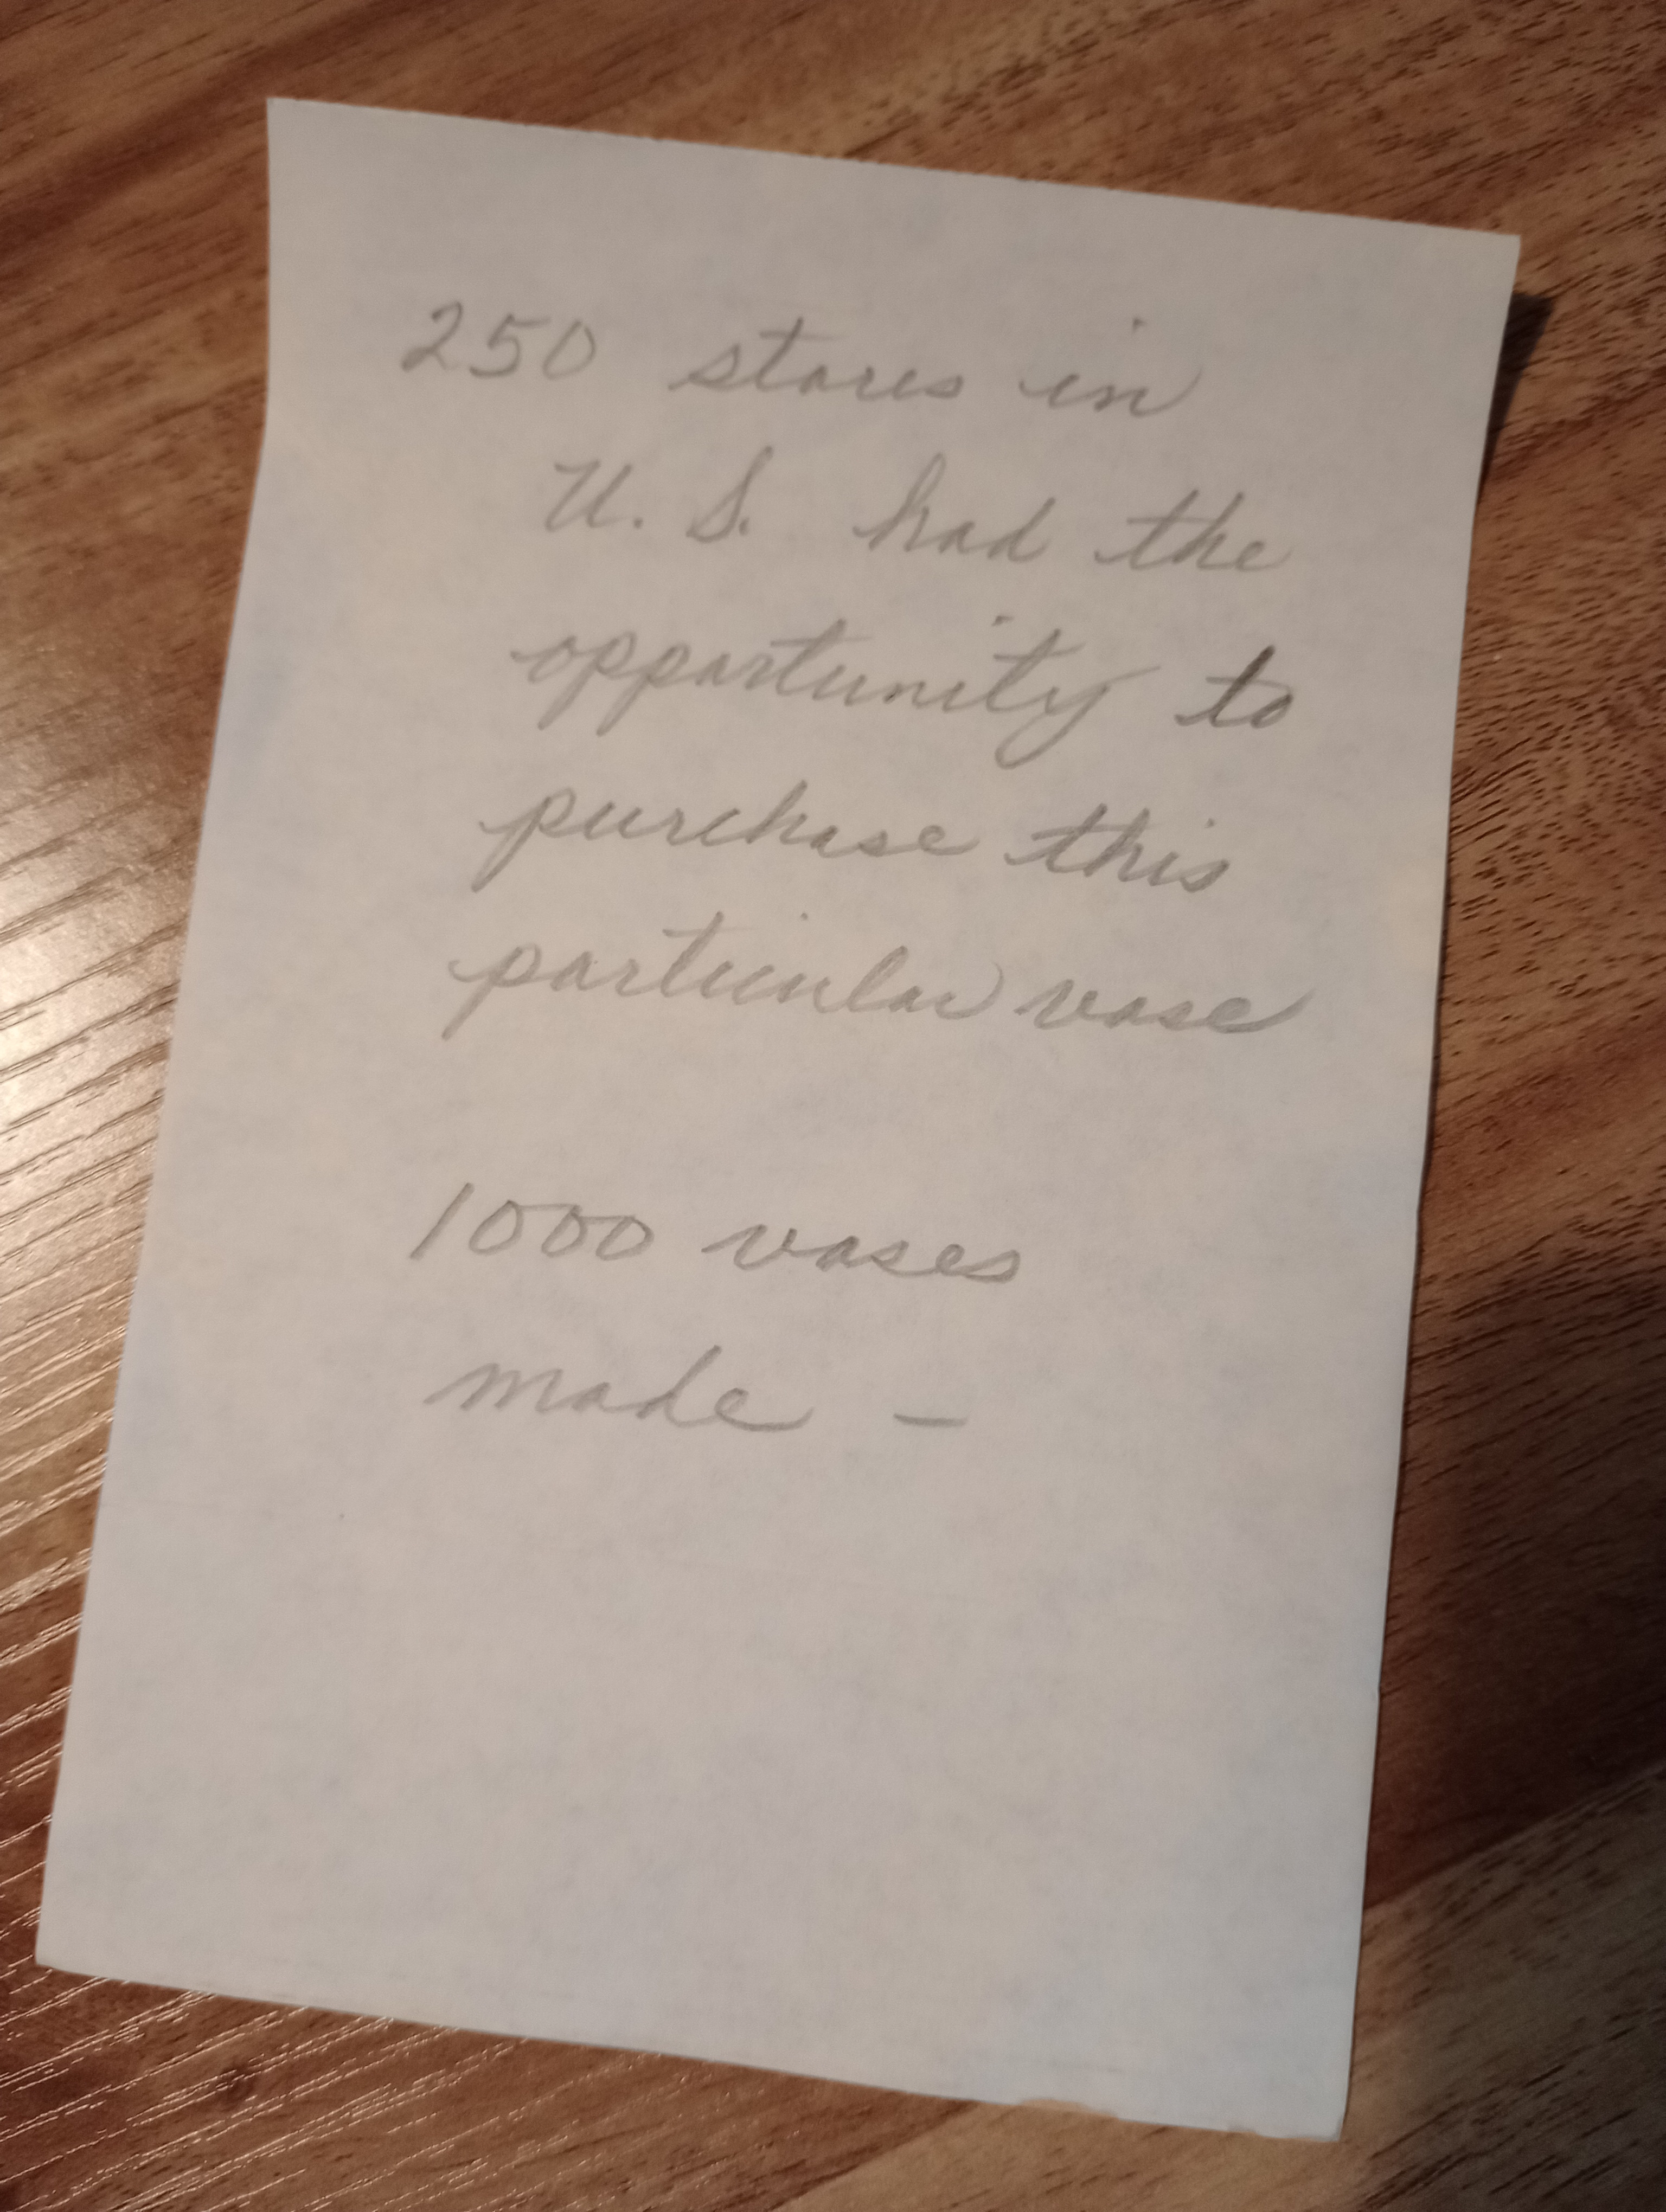 250 stores in
U. S. had the
opportunity to
purchase this
particular vase
1000 vases
made –